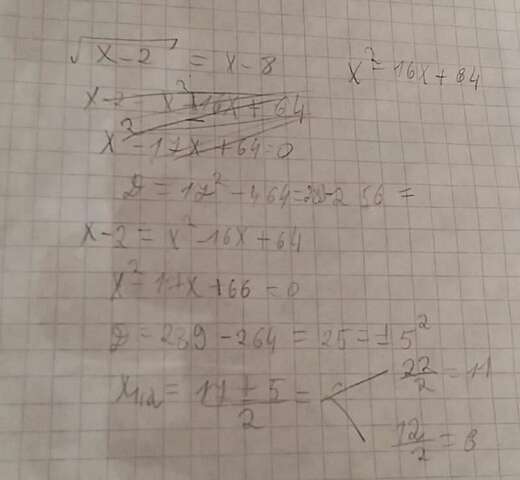 √x-2 = x-8
x² - 16x + 64
x-2 = x² - 16x + 64
x² - 17x + 64 = 0
D = 17² - 4 64 = 256 =
x-2 = x² - 16x + 64
x² - 17x + 66 = 0
D = 289 - 264 = 25 = ±5²
x₁,₂ = 17 ± 5 / 2 =
22/2 = 11
12/2 = 6